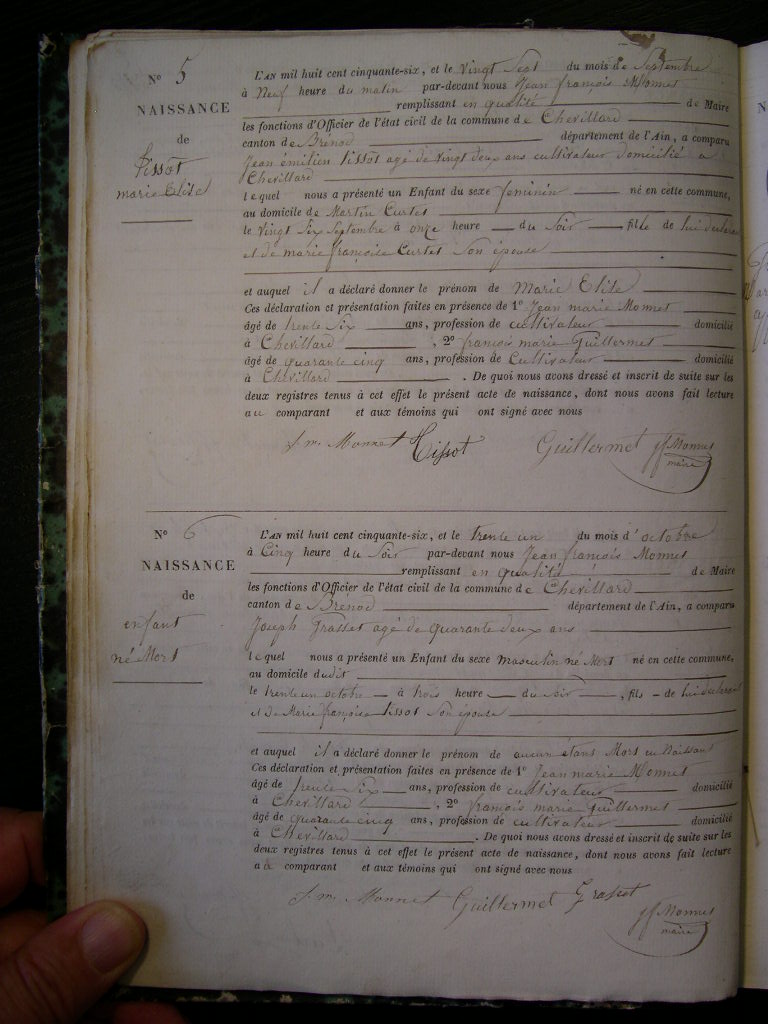 N° 5
NAISSANCE
de
Tissot
marie Elise
L'AN mil huit cent cinquante-six, et le vingt Sept du mois de Septembre
à Neuf heure du matin par-devant nous Jean françois Monnet
remplissant en qualité de Maire
les fonctions d'Officier de l'état civil de la commune de Chevillard
canton de Brénod département de l'Ain, a comparu
Jean émilien tissot agé de vingt deux ans cultivateur domicilié a
Chevillard
lequel nous a présenté un Enfant du sexe feminin né en cette commune,
au domicile de Martin Curtet
le vingt Six Septembre à onze heure du Soir fille de lui déclarant
et de marie françoise Curtet Son épouse
et auquel il a déclaré donner le prénom de Marie Elise
Ces déclaration et présentation faites en présence de 1° Jean marie Monnet
âgé de trente Six ans, profession de cultivateur domicilié
à Chevillard , 2° françois marie Guillermet
âgé de quarante cinq ans, profession de Cultivateur domicilié
à Chevillard . De quoi nous avons dressé et inscrit de suite sur les
deux registres tenus à cet effet le présent acte de naissance, dont nous avons fait lecture
au comparant et aux témoins qui ont signé avec nous
J. m. Monnet Tissot Guillermet jf Monnet
maire
N° 6
NAISSANCE
de
enfant
né Mort
L'AN mil huit cent cinquante-six, et le trente un du mois d'octobre
à Cinq heure du Soir par-devant nous Jean françois Monnet
remplissant en qualité de Maire
les fonctions d'Officier de l'état civil de la commune de Chevillard
canton de Brénod département de l'Ain, a comparu
Joseph Grasset agé de quarante deux ans
lequel nous a présenté un Enfant du sexe masculin né Mort né en cette commune,
au domicile dudit
le trente un octobre à trois heure du Soir , fils de lui déclarant
et de Marie françoise tissot Son épouse
et auquel il a déclaré donner le prénom de aucun étant Mort en Naissant
Ces déclaration et présentation faites en présence de 1° Jean marie Monnet
âgé de trente Six ans, profession de cultivateur domicilié
à Chevillard , 2° françois marie Guillermet
âgé de quarante cinq ans, profession de cultivateur domicilié
à Chevillard . De quoi nous avons dressé et inscrit de suite sur les
deux registres tenus à cet effet le présent acte de naissance, dont nous avons fait lecture
au comparant et aux témoins qui ont signé avec nous
J. m. Monnet Guillermet Grasset jf Monnet
maire